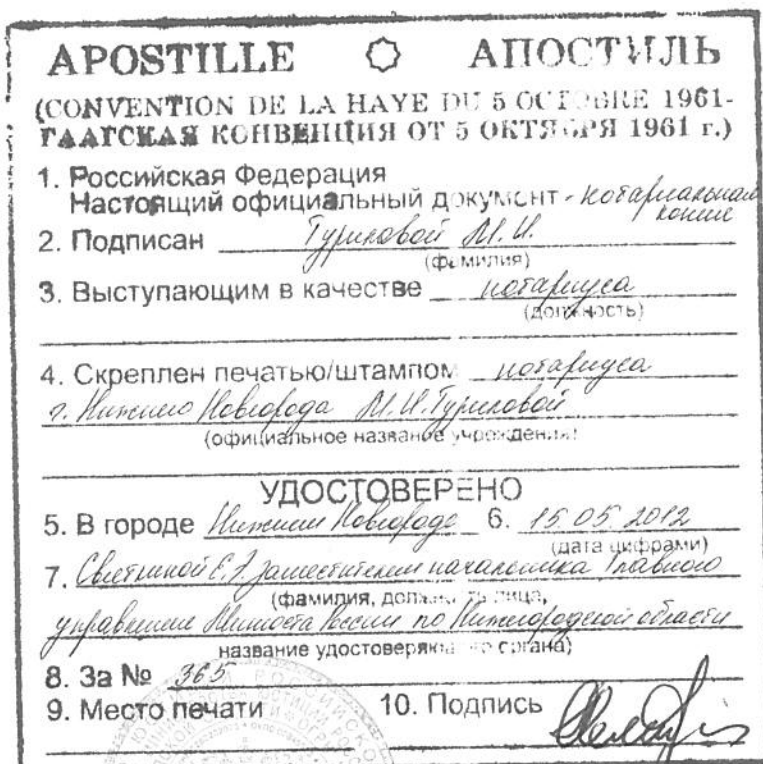 APOSTILLE АПОСТИЛЬ
(CONVENTION DE LA HAYE DU 5 OCTOBRE 1961-
ГААГСКАЯ КОНВЕНЦИЯ ОТ 5 ОКТЯБРЯ 1961 г.)
1. Российская Федерация
Настоящий официальный документ - нотариальная
копия
2. Подписан Туриловой М.И.
(фамилия)
3. Выступающим в качестве нотариуса
(должность)
4. Скреплен печатью/штампом нотариуса
г. Нижнего Новгорода М.И. Туриловой
(официальное название учреждения)
УДОСТОВЕРЕНО
5. В городе Нижнем Новгороде 6. 15.05.2012
(дата цифрами)
7. Е. заместителем начальника Главного
(фамилия, должность лица,
управления Минюста России по Нижегородской области
название удостоверяющего органа)
8. За № 365
9. Место печати 10. Подпись